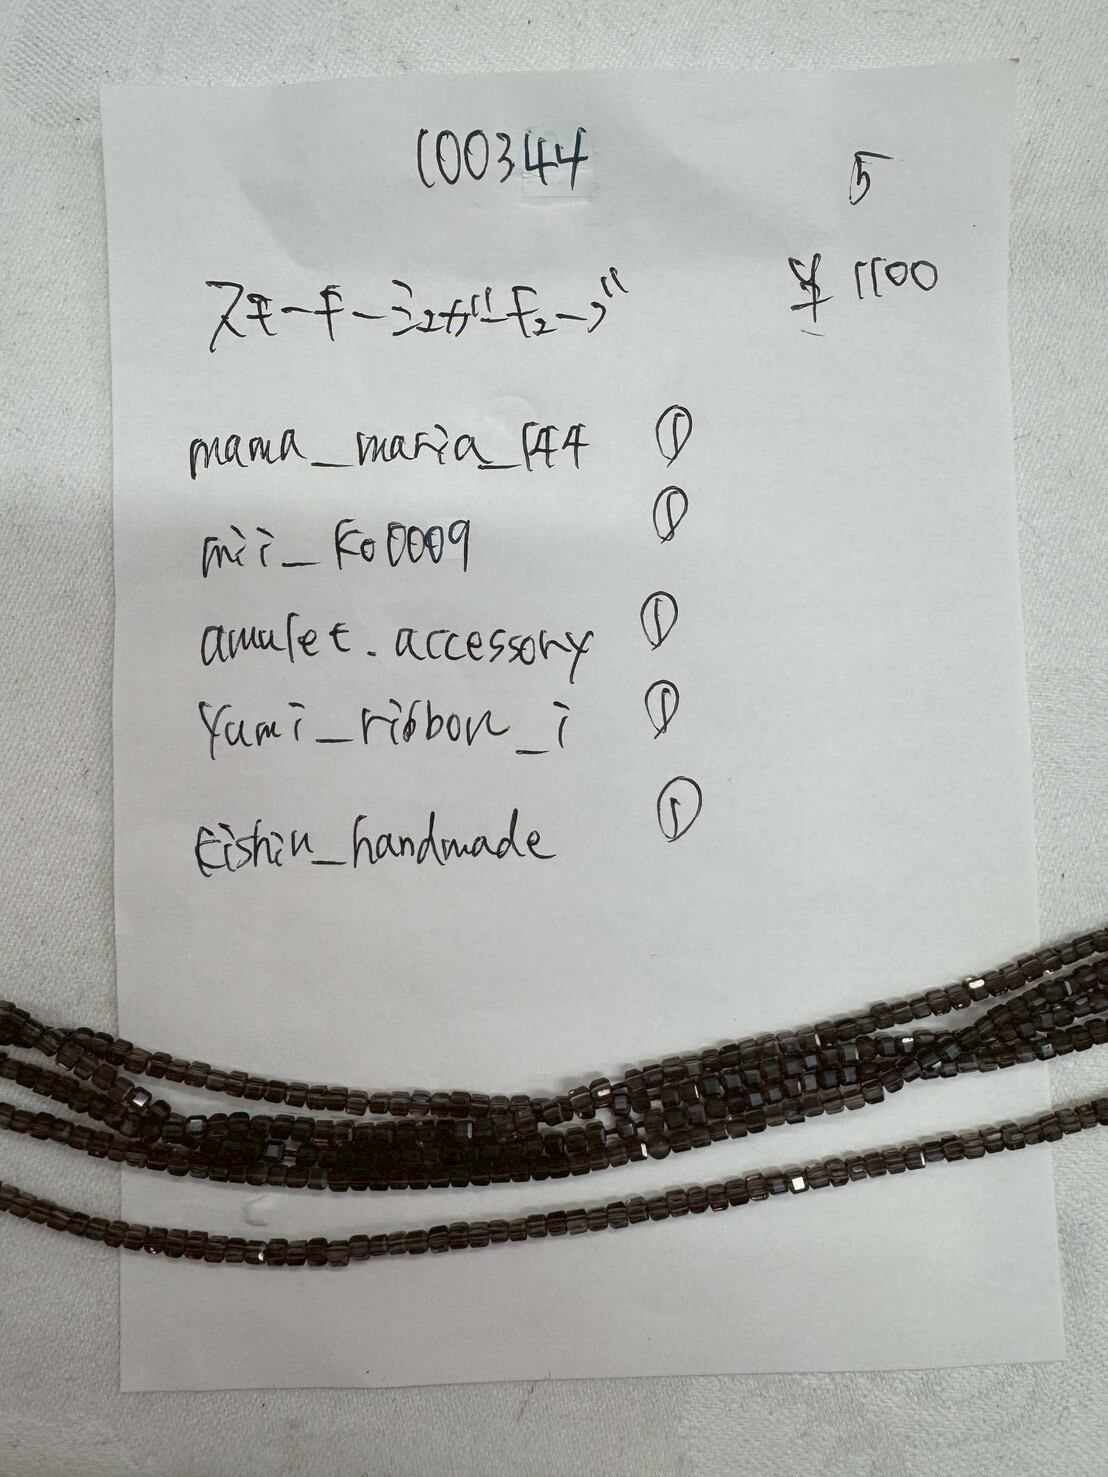 100344
5
スモーキーシュガーキューブ
¥1100
mama_maria_144 ①
mii_ko0009 ①
amulet.accessory ①
yumi_ribbon_i ①
eishin_handmade ①